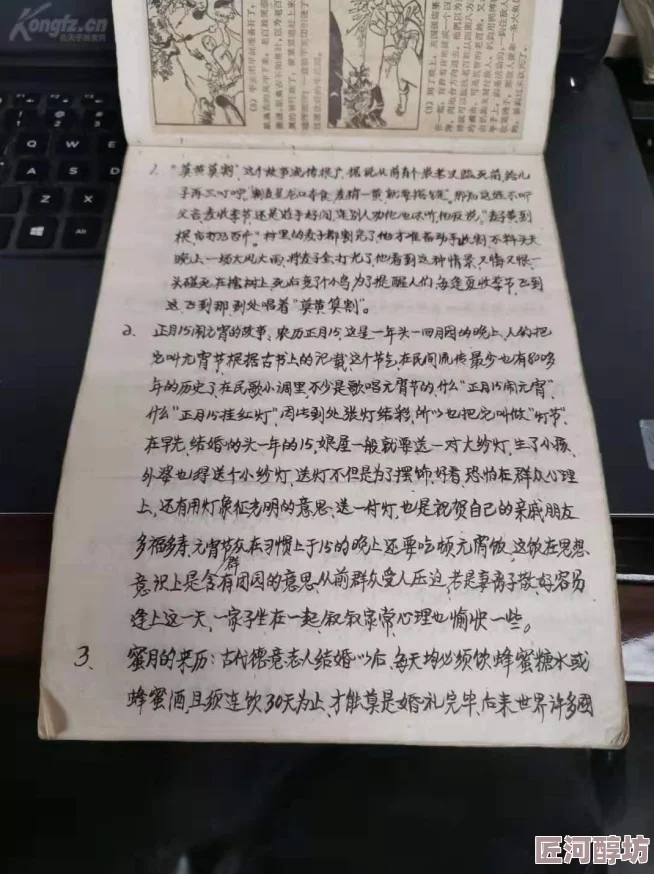 Kongfz.com
孔夫子旧书网
1. "莫黄莫割"这个故事流传很广,据说从前有个患老汉临死前给儿
子再三叮咛,割麦是龙口夺食,麦稍一黄就要搭镰。那知这娃不听
父言麦收季节还是游手好闲,连别人劝他也不听他反说,"麦子黄到
根,亩打3百斤"村里的麦子都割完了他才准备动手收割,不料头天
晚上一场大风大雨,将麦子全打光了,他看到这种情景,又悔又恨一
头碰死在槐树上,死后变了个小鸟,为了提醒人们,每逢夏收季节飞到
这飞到那到处唱着"莫黄莫割"。
2. 正月15闹元宵的故事,农历正月15这是一年头一回月园的晚上,人们把
它叫元宵节根据古书上的记载,这个节气在民间流传最少也有
年的历史了在民歌小调里不少是歌唱元宵节的什么"正月15闹元宵"
什么"正月15挂红灯"因此到处张灯结彩,所以也把它叫做"灯节"
在早先,结婚的头一年的15,娘屋一般就要送一对大纱灯,生了小孩,
外婆也得送个小纱灯,送灯不但是为了摆饰好看恐怕在群众心理
上,还有用灯象征光明的意思,送一付灯,也是祝贺自己的亲戚朋友
多福多寿,元宵节群众在习惯上于15的晚上还要吃顿元宵饭,这饭在思想
意识上是含有团园的意思,从前群众受人压迫,若是妻离子散,好容易
逢上这一天,一家子坐在一起,叙叙家常心理也愉快一些。
3、蜜月的来历:古代德竟老人结婚以后,每天均必须饮蜂蜜糖水或
蜂蜜酒,且须连饮30天为止,才能算是婚礼完毕,后来世界许多國
匠河醇坊